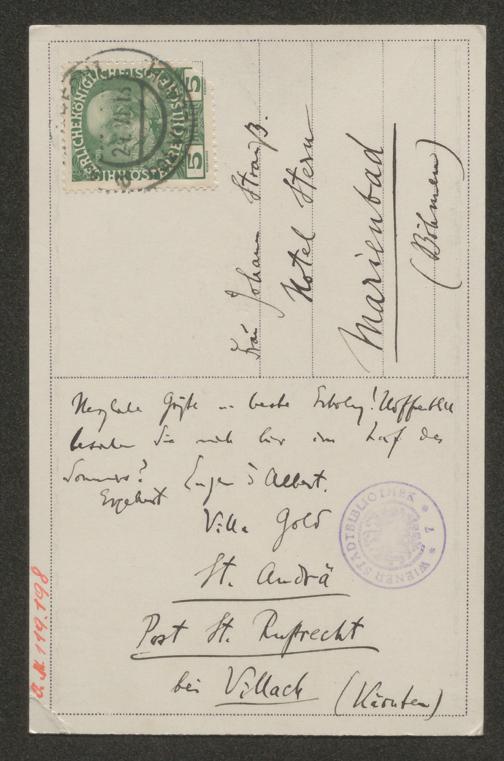 5
5
24. VI. 13
Frau Johann Strauß.
Hotel Stern
Marienbad
(Böhmen)
Herzliche Grüße u. beste Erholg! Hoffentlich
besuchen Sie mich hier im Lauf des
Sommers?
Ergebenst Eugen d'Albert.
Villa Gold
St. Andrä
Post St. Ruprecht
bei Villach (Kärnten)
* WIENER STADTBIBLIOTHEK * 7
119.198